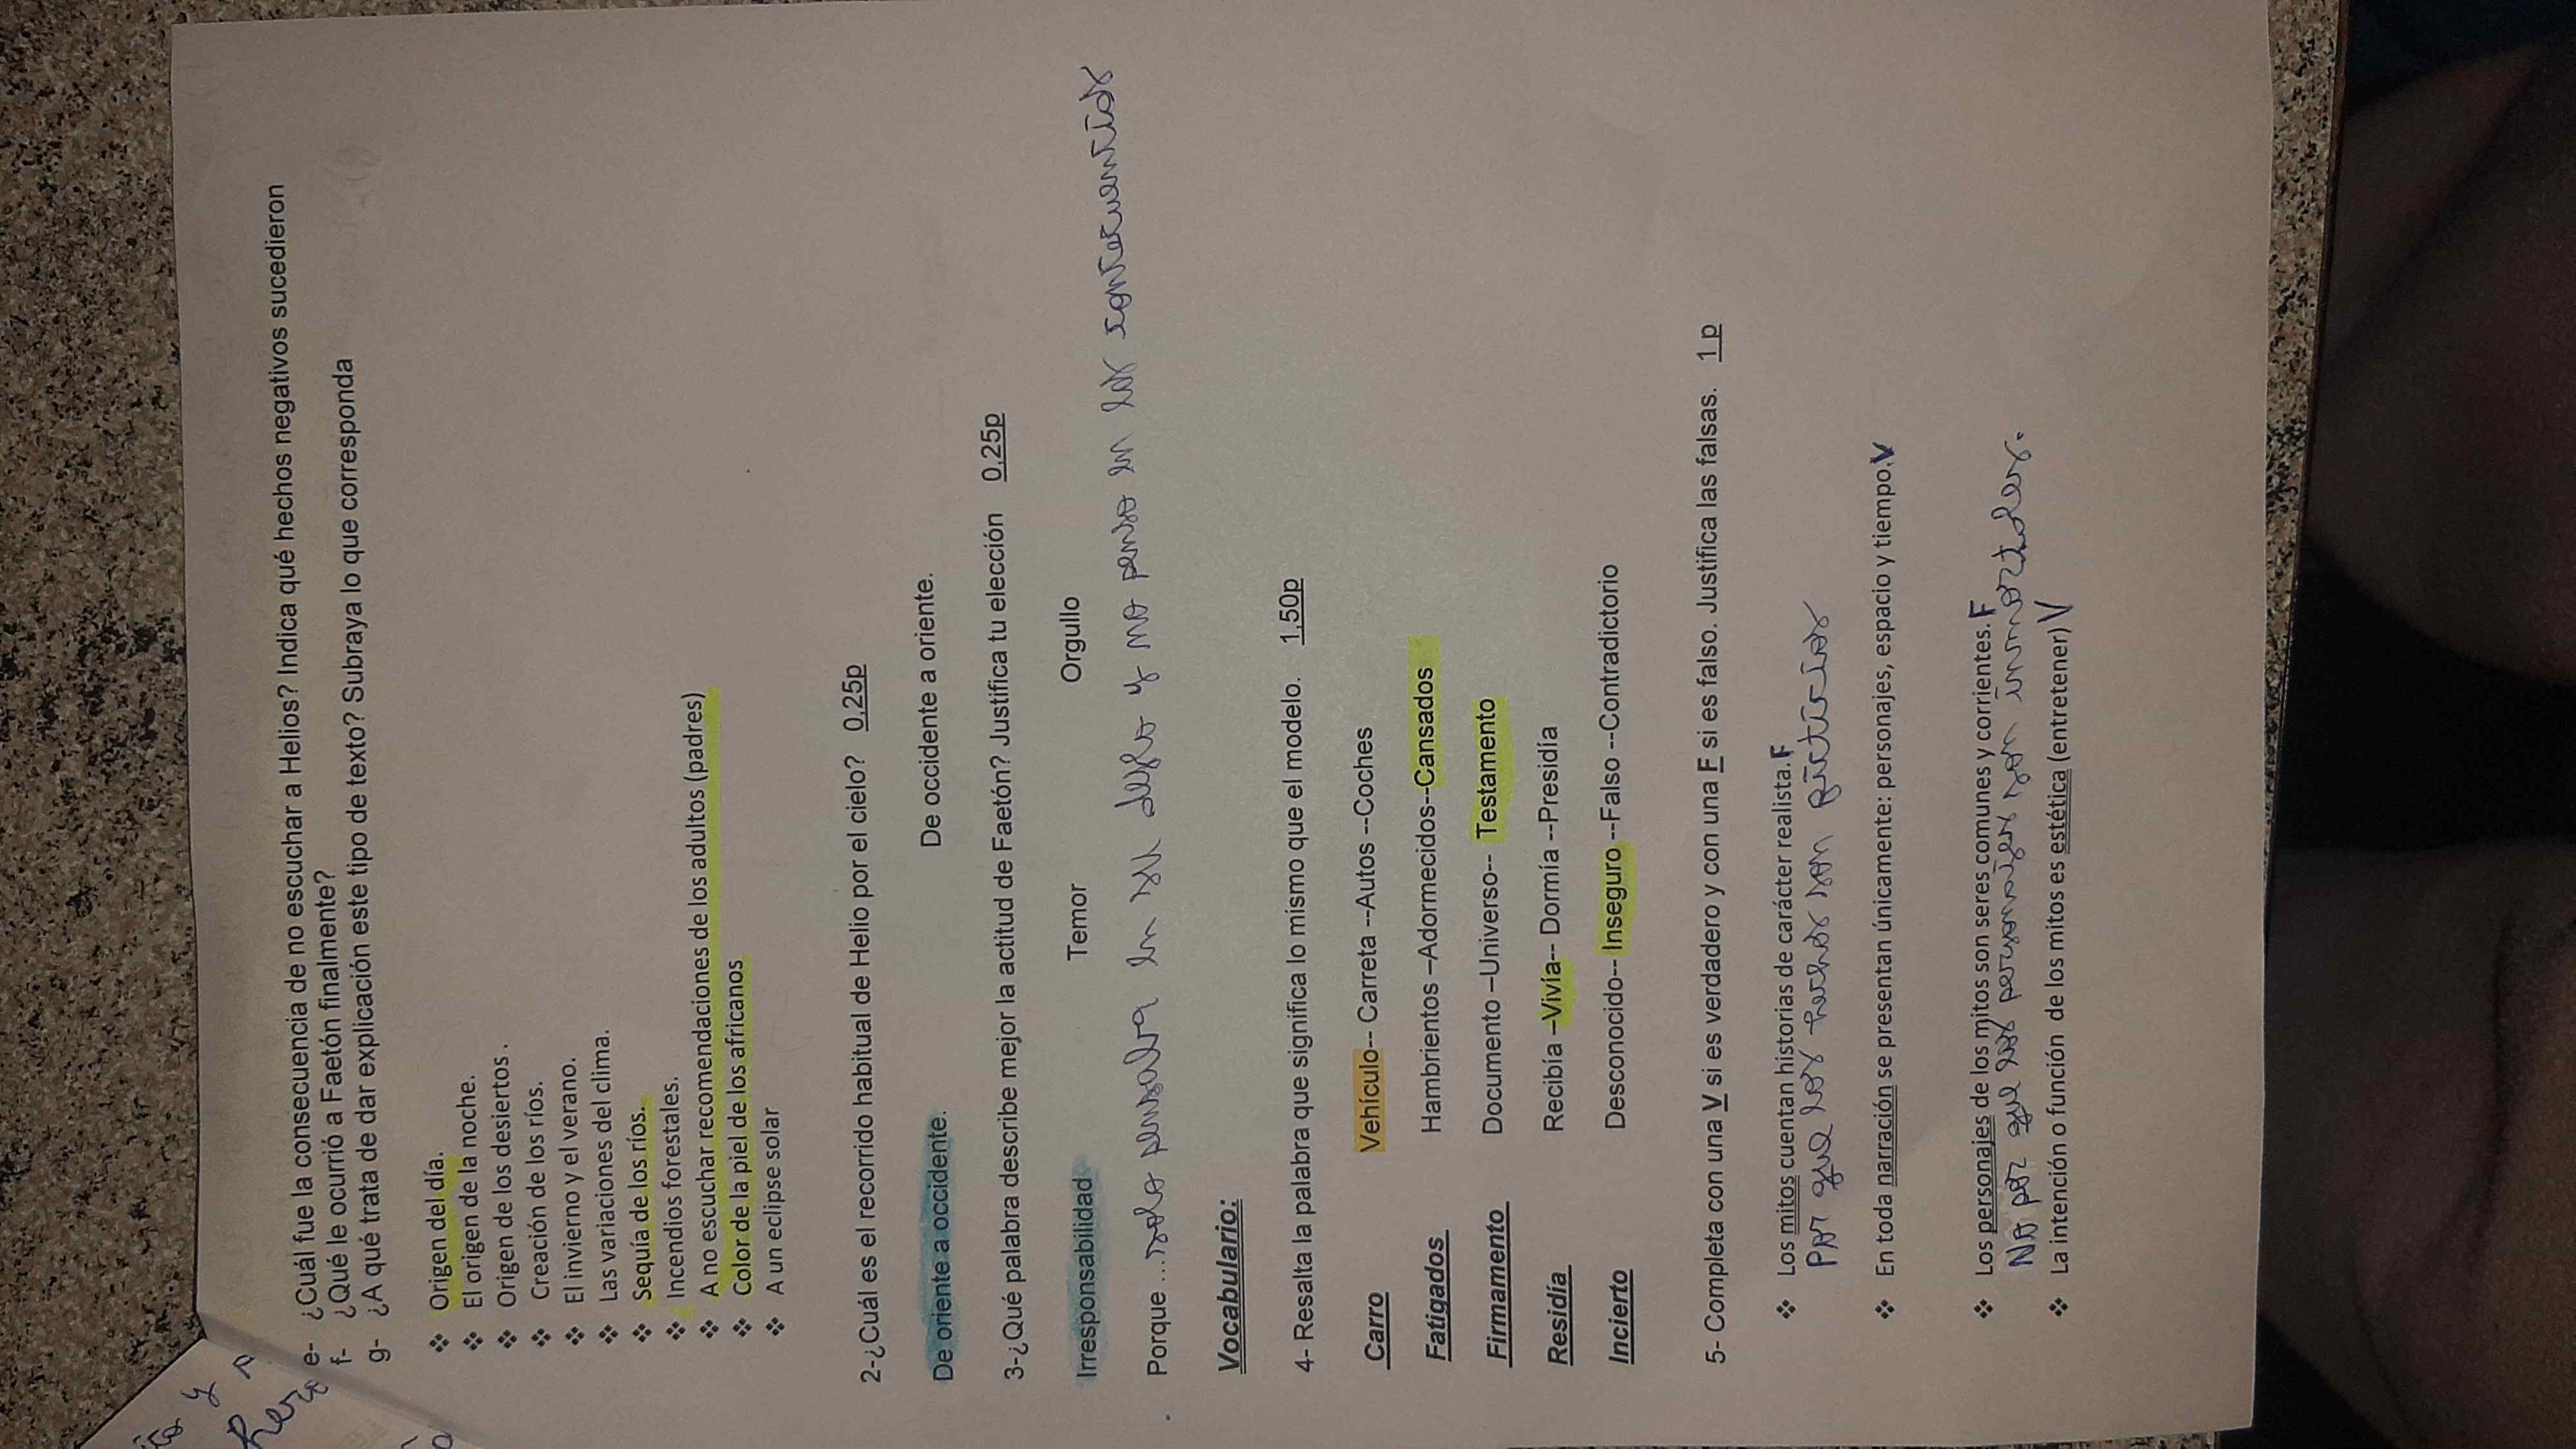 e- ¿Cuál fue la consecuencia de no escuchar a Helios? Indica qué hechos negativos sucedieron
f- ¿Qué le ocurrió a Faetón finalmente?
g- ¿A qué trata de dar explicación este tipo de texto? Subraya lo que corresponda
❖ Origen del día.
❖ El origen de la noche.
❖ Origen de los desiertos .
❖ Creación de los ríos.
❖ El invierno y el verano.
❖ Las variaciones del clima.
❖ Sequía de los ríos.
❖ Incendios forestales.
❖ A no escuchar recomendaciones de los adultos (padres)
❖ Color de la piel de los africanos
❖ A un eclipse solar
2-¿Cuál es el recorrido habitual de Helio por el cielo? 0,25p
De oriente a occidente. De occidente a oriente.
3-¿Qué palabra describe mejor la actitud de Faetón? Justifica tu elección 0,25p
Irresponsabilidad Temor Orgullo
Porque ...solo pensaba en su deseo y no penso en las consecuencias
Vocabulario:
4- Resalta la palabra que significa lo mismo que el modelo. 1,50p
Carro Vehículo-- Carreta --Autos --Coches
Fatigados Hambrientos –Adormecidos--Cansados
Firmamento Documento –Universo-- Testamento
Residía Recibía –Vivía-- Dormía --Presidía
Incierto Desconocido-- Inseguro --Falso --Contradictorio
5- Completa con una V si es verdadero y con una F si es falso. Justifica las falsas. 1 p
❖ Los mitos cuentan historias de carácter realista. F
Por que los hechos son ficticios
❖ En toda narración se presentan únicamente: personajes, espacio y tiempo. V
❖ Los personajes de los mitos son seres comunes y corrientes. F
No por que los personajes son inmortales.
❖ La intención o función de los mitos es estética (entretener) V